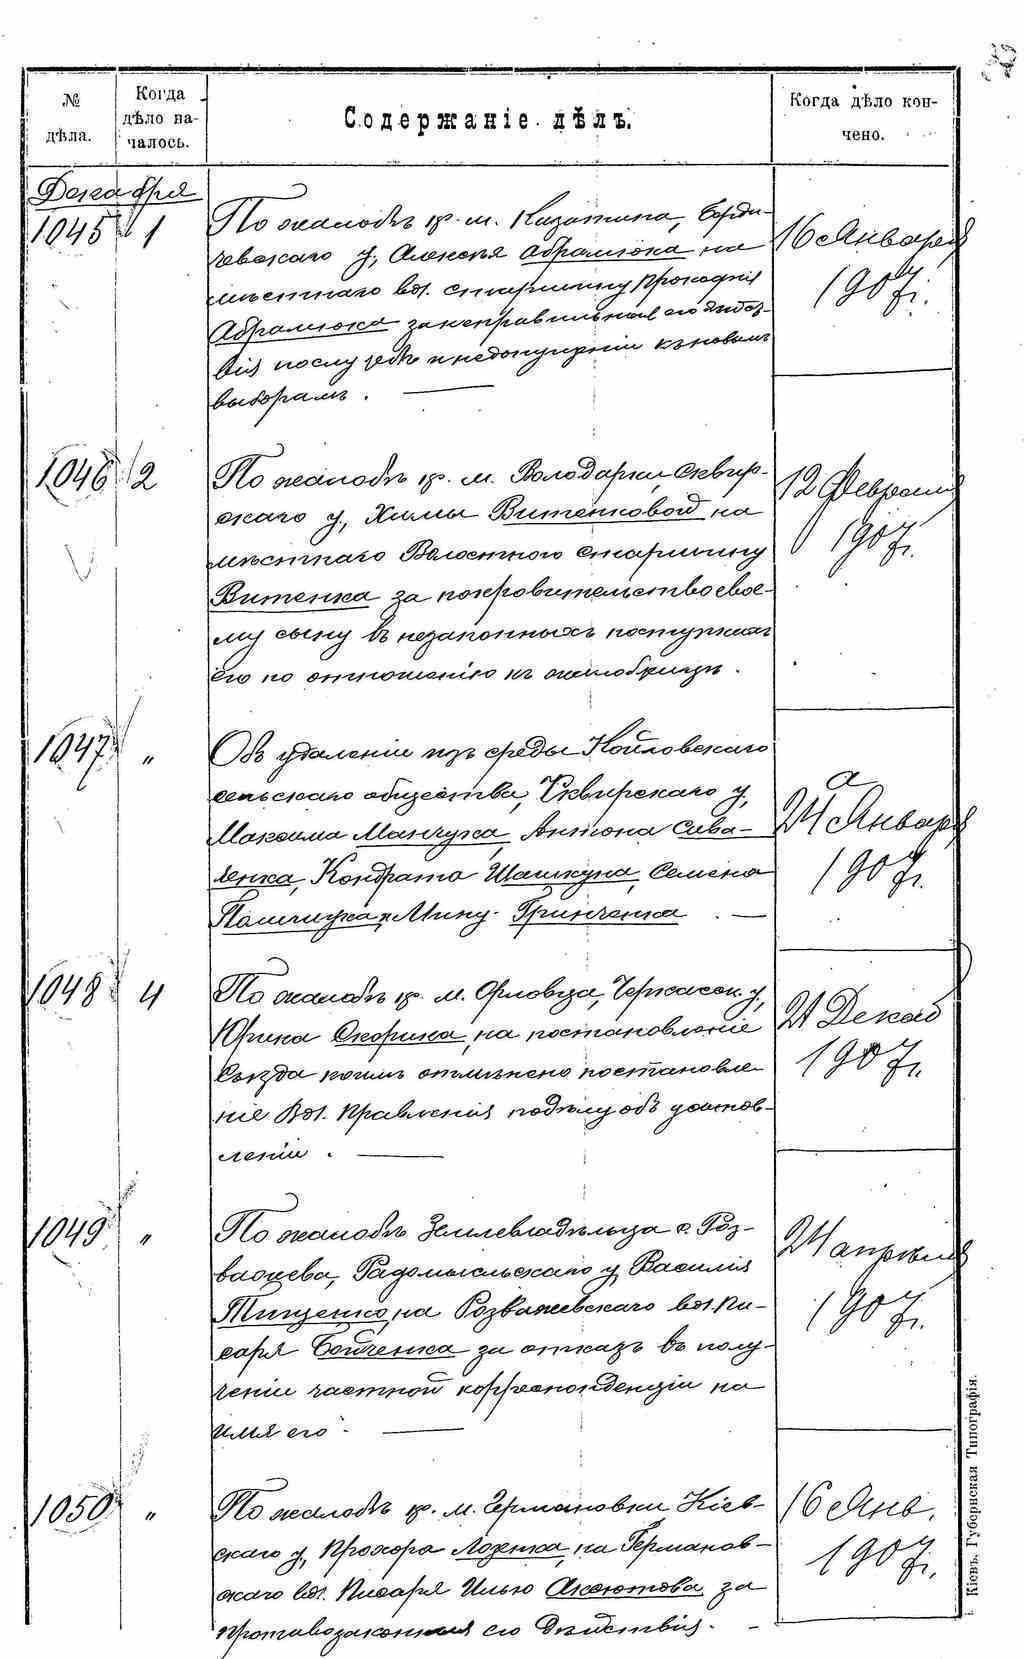 № дѣла.
Когда дѣло началось.
Содержаніе дѣлъ.
Когда дѣло кончено.
Декабря
1045 1
По жалобѣ кр. м. Казатина, Берди-
чевскаго у, Алексѣя Абрамюка на
мѣстнаго вол. старшину Прокофія
Абрамюка за неправильное его дѣйст-
вія по службѣ и недопущеніи къ новымъ
выборамъ.
16 Января
1907 г.
1046 2
По жалобѣ кр. м. Володарки, Сквир-
скаго у, Химы Витенковой на
мѣстнаго Волостного старшину
Витенка за покровительство свое-
му сыну въ незаконныхъ поступкахъ
его по отношенію къ жалобщицѣ.
12 Февраля
1907 г.
1047 „
Объ удаленіи изъ среды
сельскаго общества, Сквирскаго у,
Максима Манчука, Антона Сава-
ленка, Кондрата Шашкуна, Семена
и Мину Гринченка
24 Января
1907 г.
1048 4
По жалобѣ кр. м. Орловца, Черкасск. у,
Скорика, на постановленіе
Съѣзда коимъ отмѣнено постановле-
ніе Вол. Правленія по дѣлу объ усынов-
леніи.
21 Декаб
1907 г.
1049 „
По жалобѣ Землевладѣльца с. Роз-
важева, Радомысльскаго у, Василія
Тищенко, на Розважевскаго вол. пи-
саря Бойченка за отказъ въ полу-
ченіи частной корреспонденціи на
имя его.
24 апрѣля
1907 г.
1050 „
По жалобѣ кр. м. Германовки Кіев-
скаго у, Прохора Лозенка, на Германов-
скаго вол. Писаря Илью Аксютова за
противозаконныя его дѣйствія.
16 Янв.
1907 г.
Кіевъ. Губернская Типографія.